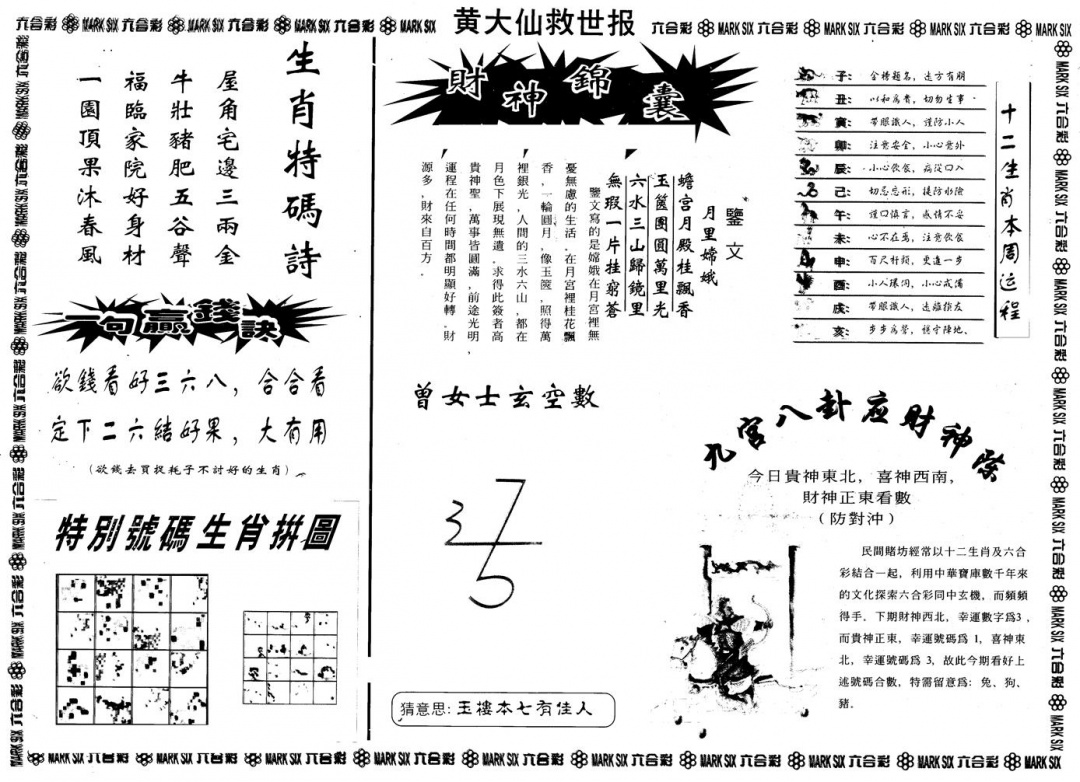 黄大仙救世报
六合彩 MARK SIX 六合彩 MARK SIX 六合彩 MARK SIX 六合彩 MARK SIX
六合彩 MARK SIX 六合彩 MARK SIX 六合彩 MARK SIX 六合彩 MARK SIX
生肖特碼詩
屋角宅邊三兩金
牛壯豬肥五谷聲
福臨家院好身材
一園頂果沐春風
一句贏錢訣
欲錢看好三六八，合合看
定下二六結好果，大有用
(欲錢去買捉耗子不討好的生肖)
特別號碼生肖拼圖
財神錦囊
鑒文
月里嫦娥
蟾宮月殿桂飄香
玉篋團圓萬里光
六水三山歸鏡里
無瑕一片挂窮蒼
鑒文寫的是嫦娥在月宮裡無
憂無慮的生活，在月宮裡桂花飄
香，一輪圓月，像玉篋，照得萬
裡銀光，人間的三水六山，都在
月色下展現無遺，求得此簽者高
貴神聖，萬事皆圓滿，前途光明，
運程在任何時間都明顯好轉，財
源多，財來自百方。
曾女士玄空數
3
7
5
猜意思: 玉樓本七有佳人
十二生肖本周运程
子: 金榜題名，遠方有朋
丑: 以和爲貴，切勿生事
寅: 帶眼識人，謹防小人
卯: 注意安全，小心意外
辰: 小心飲食，病從口入
己: 切忌忘形，提防水險
午: 謹口慎言，感情不妥
未: 心不在焉，注意飲食
申: 百尺杆頭，更進一步
酉: 小人環伺，小心戒備
戌: 帶眼識人，遠離損友
亥: 步步爲營，穩守陣地、
九宮八卦应財神
今日貴神東北，喜神西南，
財神正東看數
(防對沖)
民間賭坊經常以十二生肖及六合
彩結合一起，利用中華寶庫數千年來
的文化探索六合彩同中玄機，而頻頻
得手．下期財神西北，幸運數字爲3，
而貴神正東，幸運號碼爲 1，喜神東
北，幸運號碼爲 3，故此今期看好上
述號碼合數，特需留意爲: 兔、狗、
豬．
MARK SIX 六合彩 MARK SIX 六合彩 MARK SIX 六合彩 MARK SIX 六合彩 MARK SIX 六合彩 MARK SIX 六合彩 MARK SIX 六合彩 MARK SIX 六合彩 MARK SIX 六合彩 MARK SIX